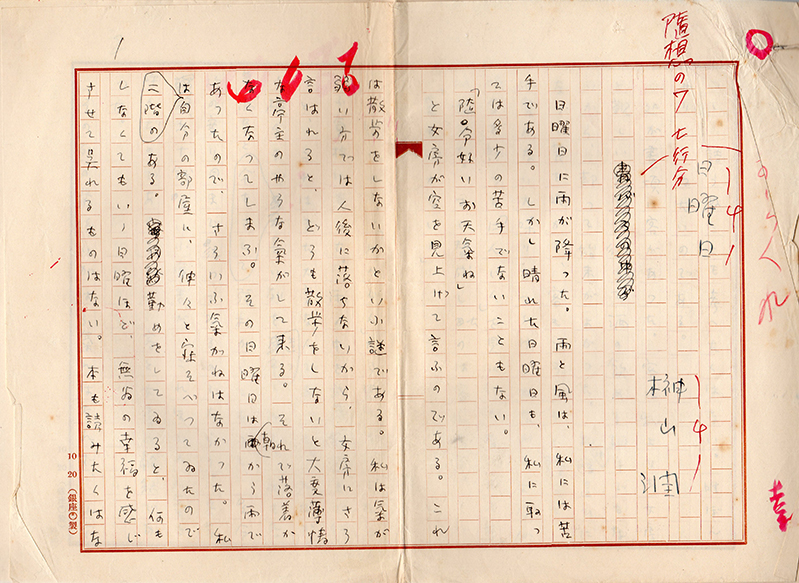 随想の7 七行分
日曜日
榊山潤
日曜日に雨が降つた。雨と風は、私には苦
手である。しかし晴れた日曜日も、私に取つ
ては多少の苦手でないこともない。
「随分好いお天氣ね」
と女房が空を見上げて言ふのである。これ
は散歩をしないかといふ謎である。私は氣が
弱い方では人後に落ちないから、女房にさう
言はれると、どうも散歩をしないと大変薄情
な亭主のやうな氣がして来る。それで落着か
なくなつてしまふ。その日曜日は朝から雨で
あつたので、さういふ氣がねはなかつた。私
は二階の自分の部屋に、伸々と寝そべつてゐたので
ある。勤めをしてゐると、何も
しなくてもいゝ日曜ほど、無為の幸福を感じ
させて呉れるものはない。本も読みたくはな
10 20 (銀座製)